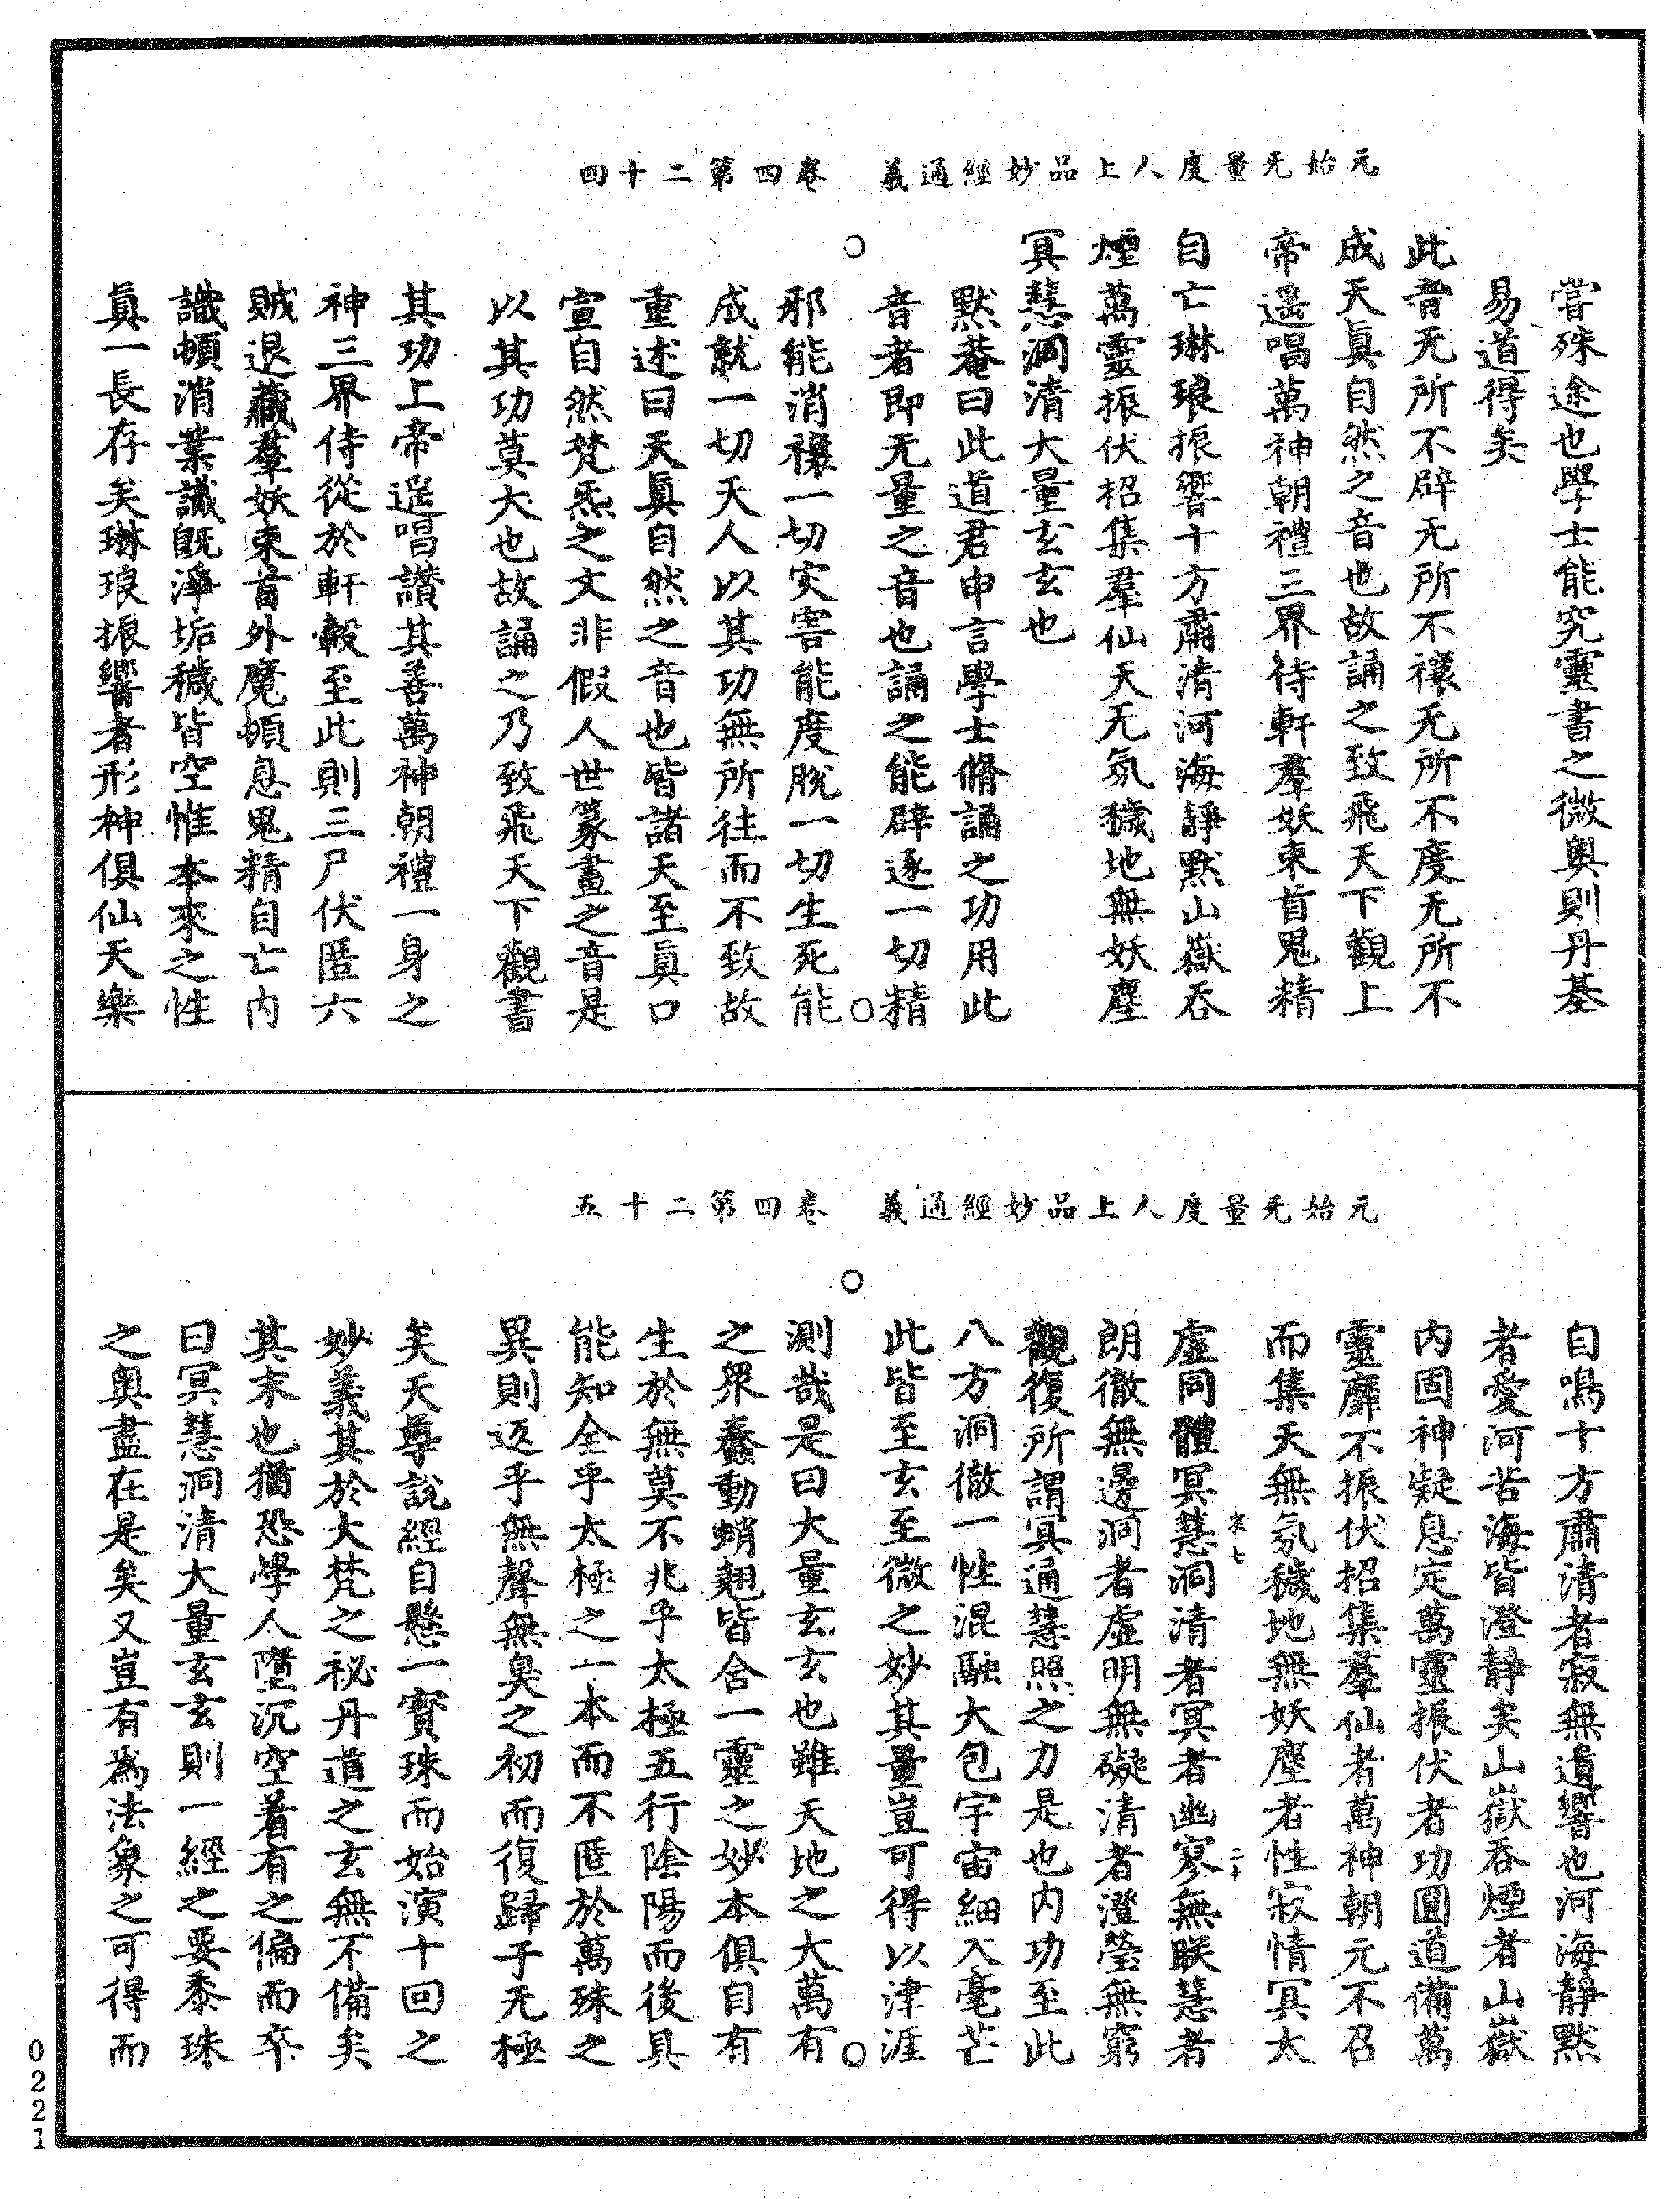 元始无量度人上品妙經通義　卷四第二十四
嘗殊途也學士能究靈書之微奧則丹基
易道得矣
此音无所不辟无所不禳无所不度无所不
成天真自然之音也故誦之致飛天下觀上
帝遥唱萬神朝禮三界侍軒羣妖束首鬼精
自亡琳琅振響十方肅清河海靜默山嶽吞
煙萬靈振伏招集羣仙天无氛穢地無妖塵
冥慧洞清大量玄玄也
默菴曰此道君申言學士脩誦之功用此
音者即无量之音也誦之能辟逐一切精
邪能消禳一切灾害能度脫一切生死能
成就一切天人以其功無所往而不致故
重述曰天真自然之音也皆諸天至真口
宣自然梵炁之文非假人世篆畫之音是
以其功莫大也故誦之乃致飛天下觀書
其功上帝遥唱讚其善萬神朝禮一身之
神三界侍從於軒轂至此則三尸伏匿六
賊退藏羣妖束首外魔頓息鬼精自亡内
識頓消業識旣淨垢穢皆空惟本來之性
真一長存矣琳琅振響者形神俱仙天樂
元始无量度人上品妙經通義　卷四第二十五
自鳴十方肅清者寂無遺響也河海靜默
者愛河苦海皆澄靜矣山嶽吞煙者山嶽
内固神凝息定萬靈振伏者功圓道備萬
靈靡不振伏招集羣仙者萬神朝元不召
而集天無氛穢地無妖塵者性寂情冥太
虛同體冥慧洞清者冥者幽寥無朕慧者
朗徹無邊洞者虛明無礙清者澄瑩無窮
觀復所謂冥通慧照之力是也内功至此
八方洞徹一性混融大包宇宙細入毫芒
此皆至玄至微之妙其量豈可得以津涯
測哉是曰大量玄玄也雖天地之大萬有
之眾蠢動蛸翹皆含一靈之妙本俱自有
生於無莫不兆乎太極五行陰陽而後具
能知全乎太極之一本而不匿於萬殊之
異則返乎無聲無臭之初而復歸于无極
矣天尊說經自懸一寶珠而始演十回之
妙義其於大梵之祕丹道之玄無不備矣
其末也猶恐學人墮沉空着有之偏而卒
曰冥慧洞清大量玄玄則一經之要黍珠
之奧盡在是矣又豈有為法象之可得而
0221